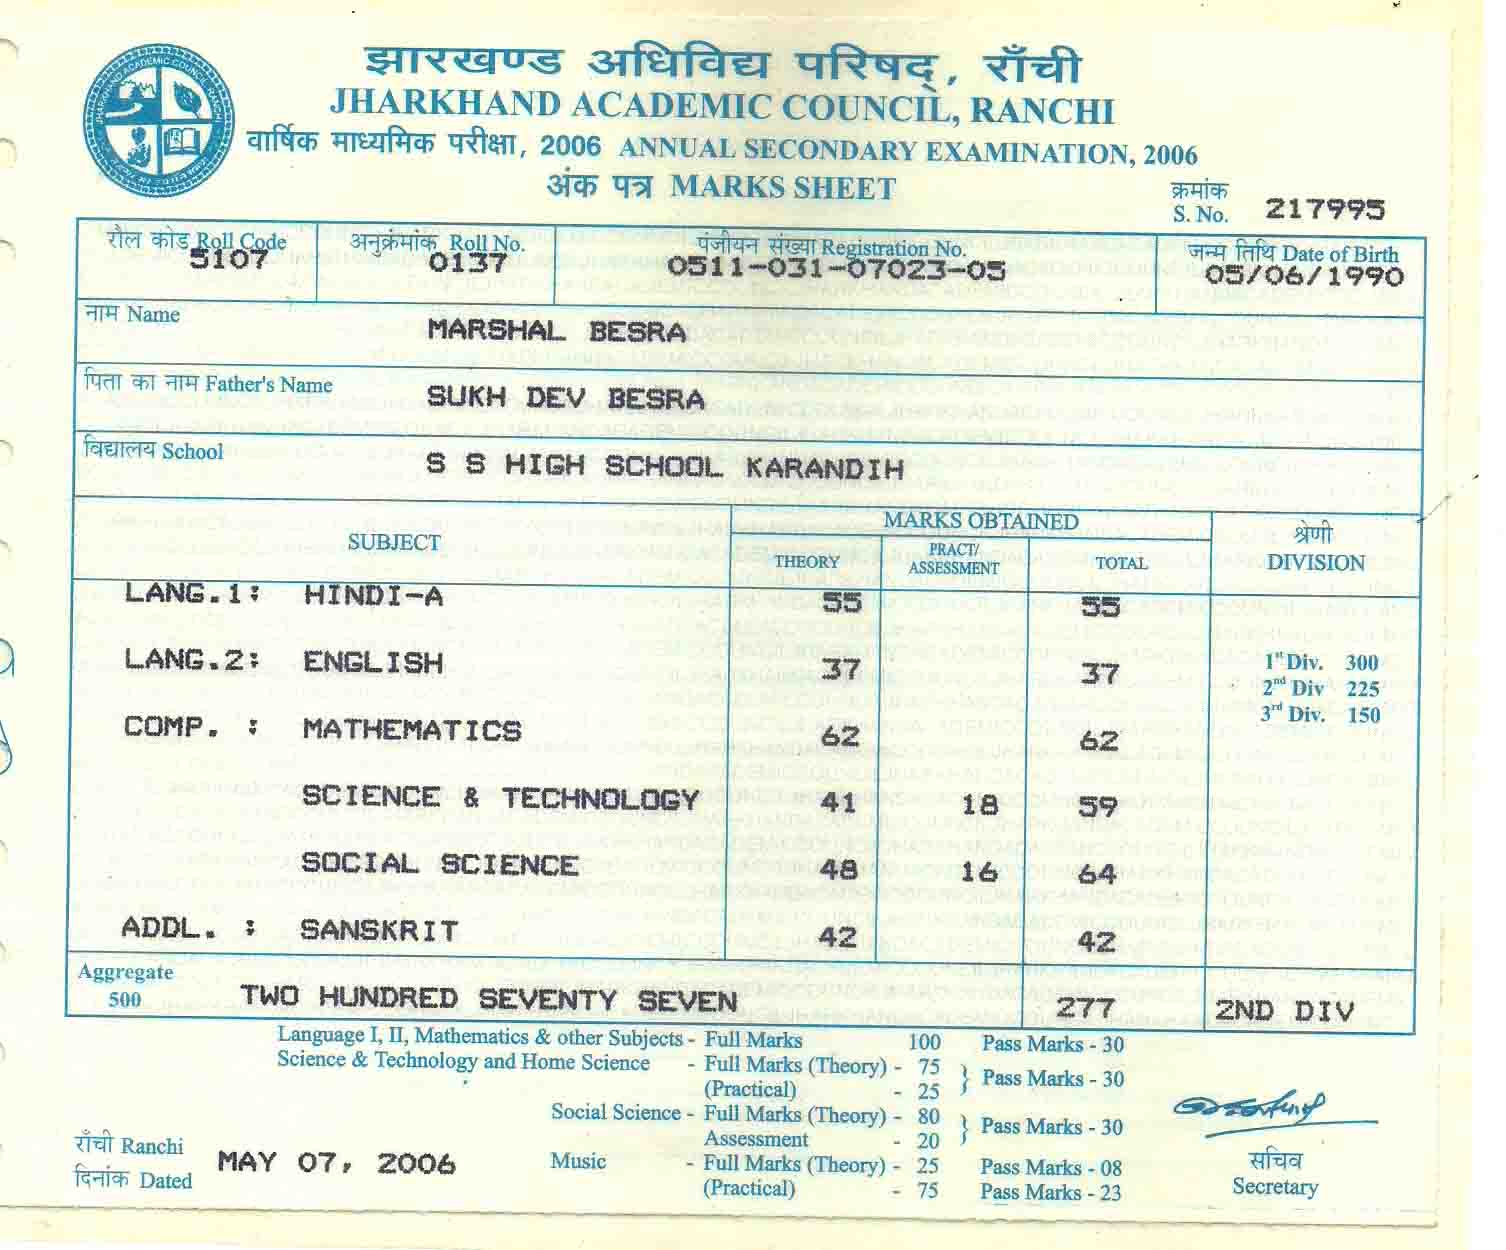 झारखण्ड अधिविद्य परिषद्, राँची
JHARKHAND ACADEMIC COUNCIL, RANCHI
वार्षिक माध्यमिक परीक्षा, 2006 ANNUAL SECONDARY EXAMINATION, 2006
अंक पत्र MARKS SHEET
क्रमांक
S. No. 217995
रौल कोड Roll Code अनुक्रमांक Roll No. पंजीयन संख्या Registration No. जन्म तिथि Date of Birth
5107 0137 0511-031-07023-05 05/06/1990
नाम Name MARSHAL BESRA
पिता का नाम Father's Name SUKH DEV BESRA
विद्यालय School S S HIGH SCHOOL KARANDIH
SUBJECT MARKS OBTAINED श्रेणी
THEORY PRACT/ ASSESSMENT TOTAL DIVISION
LANG.1: HINDI-A 55 55
LANG.2: ENGLISH 37 37
1st Div. 300
2nd Div 225
3rd Div. 150
COMP. : MATHEMATICS 62 62
SCIENCE & TECHNOLOGY 41 18 59
SOCIAL SCIENCE 48 16 64
ADDL. : SANSKRIT 42 42
Aggregate
500 TWO HUNDRED SEVENTY SEVEN 277 2ND DIV
Language I, II, Mathematics & other Subjects - Full Marks 100 Pass Marks - 30
Science & Technology and Home Science - Full Marks (Theory) - 75
(Practical) - 25 } Pass Marks - 30
Social Science - Full Marks (Theory) - 80
Assessment - 20 } Pass Marks - 30
Music - Full Marks (Theory) - 25 Pass Marks - 08
(Practical) - 75 Pass Marks - 23
राँची Ranchi
दिनांक Dated MAY 07, 2006
सचिव
Secretary